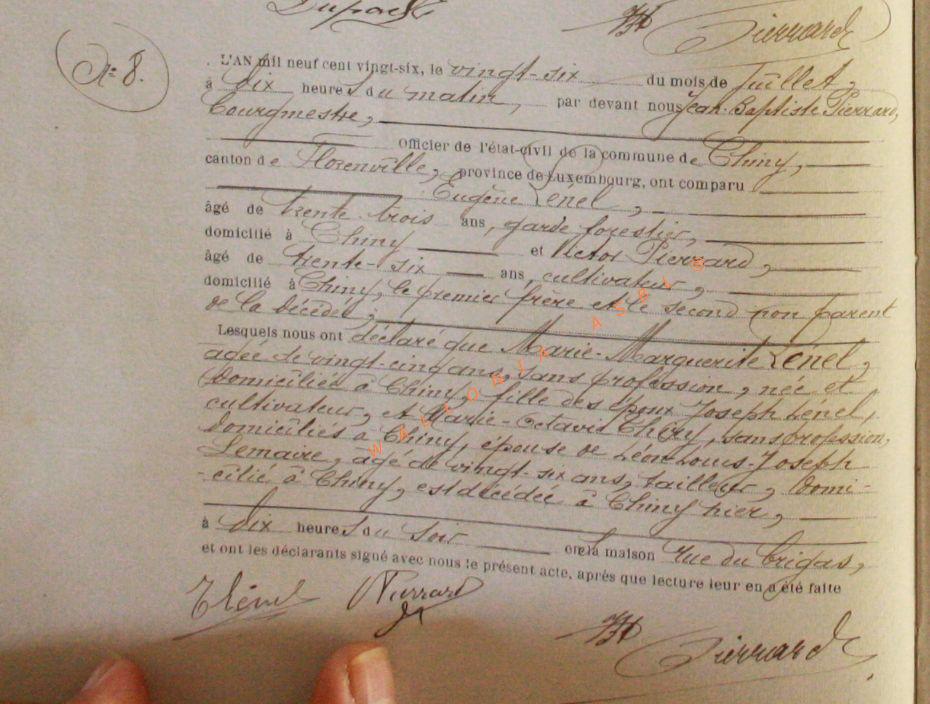 Dupont
Pierrard
N° 8.
L'AN mil neuf cent vingt-six, le vingt-six du mois de Juillet,
à dix heures du matin, par devant nous Jean-Baptiste Pierrard,
bourgmestre,
Officier de l'état-civil de la commune de Chiny,
canton de Florenville, province de Luxembourg, ont comparu
Eugène Lénel,
âgé de trente trois ans, garde forestier,
domicilié à Chiny et Victor Pierrard,
âgé de trente-six ans, cultivateur,
domicilié à Chiny, le premier frère et le second non parent
de la décédée,
Lesquels nous ont déclaré que Marie-Marguerite Lénel,
âgée de vingt-cinq ans, sans profession, née et
domiciliée à Chiny, fille des époux Joseph Lénel,
cultivateur, et Marie-Octavie Chéry, sans profession,
domiciliés à Chiny, épouse de Léon-Louis-Joseph
Lemaire, âgé de vingt-six ans, tailleur, domi-
-cilié à Chiny, est décédée à Chiny hier,
à dix heures du soir en la maison rue du Brigas,
et ont les déclarants signé avec nous le présent acte, après que lecture leur en a été faite
ELénel VPierrard
Pierrard